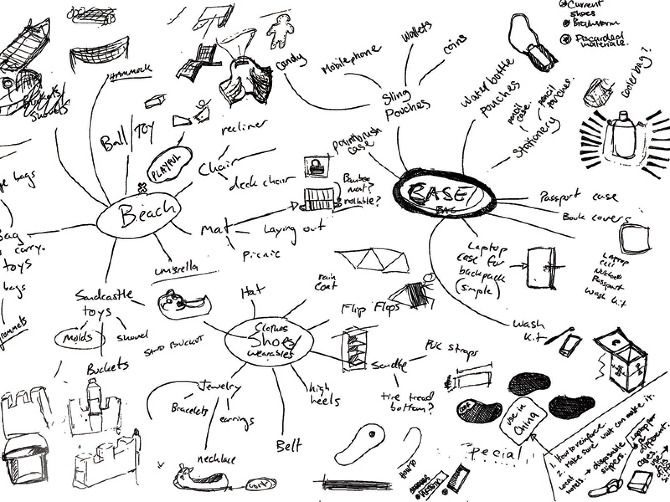 Current
shoes
Brainstorm
Discarded
materials.
Wallets
coins
Mobile phone
candy
Sling
Pouches
Water bottle
pouches
pencil
case
Stationery
Hammock
Buckets
Ball/Toy
PLAYFUL
recliner
Chair
deck chair
Beach
Mat
Laying out
Picnic
umbrella
bags
Bag
carry.
toys
bags
paintbrush
case
Bamboo
mat?
rollable?
CASE/
BAG
Passport case
Book covers
Laptop
case for
backpack
(simple)
Laptop
Cell
Passport
Wash kit
Wash
kit
Sandcastle
toys
Molds
shovel
Buckets
Hat
rain
coat
Flip Flops
Clothes
Shoes
wearables
Sandle
PVC straps
tire tread
bottom?
high
heels
Belt
Jewelry
Bracelets
earrings
necklace
use in
China
special
1. How to reinforce
2. Make sure wat can make it.
disposable
slippers.
Laptop
cases
different.